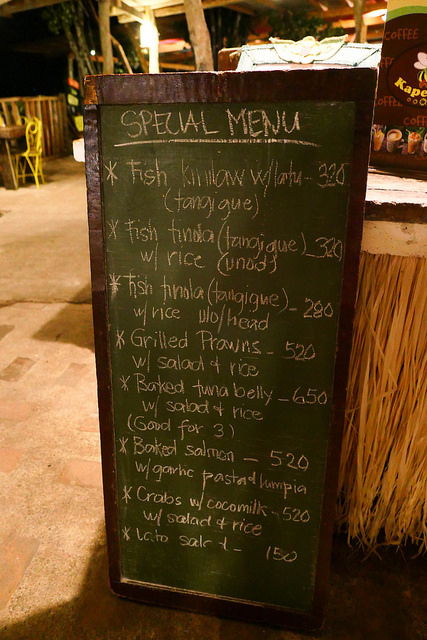 SPECIAL MENU
* Fish kinilaw w/lato - 320
(tangigue)
* Fish tinola (tangigue) - 320
w/ rice
* Fish tinola (tangigue) - 280
w/ rice w/o/head
* Grilled Prawns - 520
w/ salad & rice
* Baked tuna belly - 650
w/ salad & rice
(Good for 3)
* Baked salmon - 520
w/ garlic pasta & lumpia
* Crabs w/ cocomilk - 520
w/ salad & rice
* Lato - 150
COFFEE
Kape